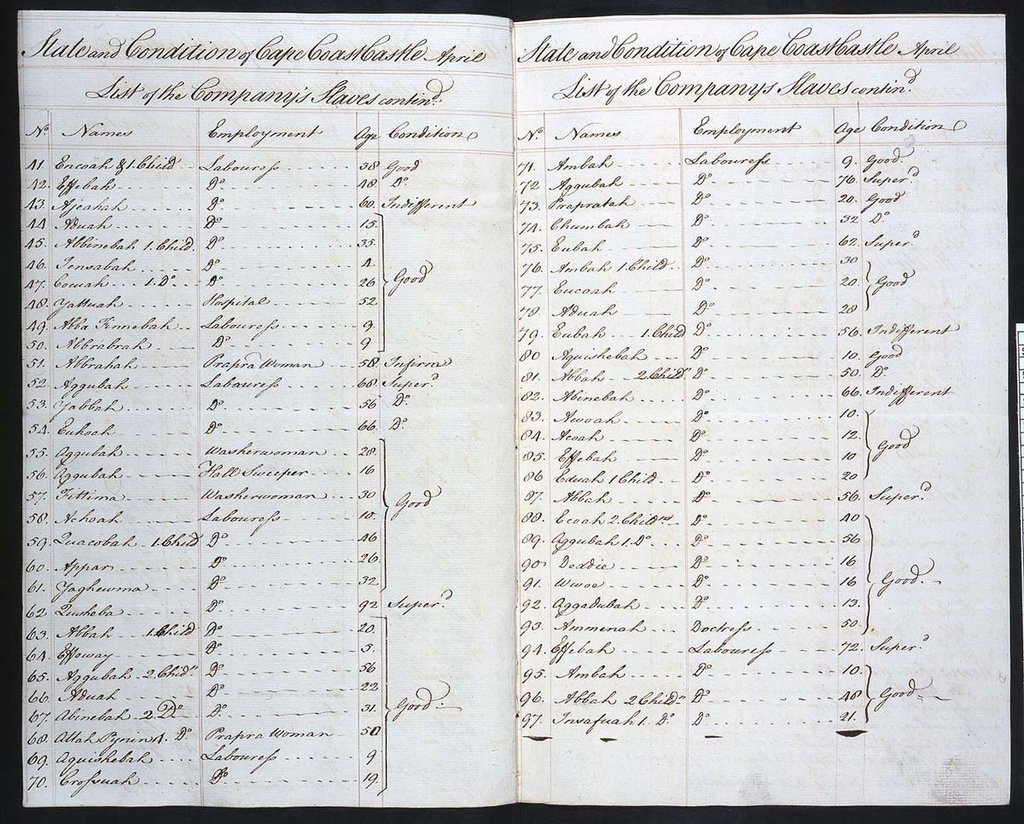 State and Condition of Cape Coast Castle April
List of the Company's Slaves contin.d
No. Names Employment Age Condition
41. Encoah & 1. Child Labouress 38 Good
42. Effebah Do. 48 Do.
43. Ajeahah Do. 60. Indifferent
44. Aduah Do. 15.
45. Abbinebah 1. Child Do. 35.
46. Tensabah Do. 4.
47. Cowah 1. Do. Do. 26 Good
48. Yattuah Hospital 52.
49. Abba Finnebah Labouress 9.
50. Abbrabrah Do. 9
51. Abbrahah Prapra Woman 58. Infirm
52. Aggubah Labouress 68. Super.d
53. Yabbah Do. 56 Do.
54. Do. 66. Do.
55. Aggubah Washerwoman 28.
56. Aggubah Hall Sweeper 16
57. Fittima Washerwoman 30 Good
58. Achoah Labouress 10.
59. Quacobah 1. Child Do. 46
60. Appar Do. 26.
61. Yaghewma Do. 32.
62. Qusheba Do. 92 Super.d
63. Abbah 1. Child Do. 20.
64. Effoway Do. 5.
65. Aggubah 2 Child.n Do. 56
66. Aduah Do. 22
67. Abinebah 2 Do. Do. 31. Good
68. Attah 1. Do. Prapra Woman 50
69. Aquishebah Labouress 9
70. Crossuah Do. 19
State and Condition of Cape Coast Castle April
List of the Companys Slaves contin.d
No. Names Employment Age Condition
71. Ambah Labouress 9. Good
72. Aggubah Do. 76. Super.d
73. Prapratah Do. 20. Good
74. Chumbah Do. 32 Do.
75. Eubah Do. 62. Super.d
76. Ambah 1 Child Do. 30
77. Eucoah Do. 20 Good
78. Aduah Do. 28
79. Eubah 1. Child Do. 56. Indifferent
80 Aquishebah Do. 10. Good
81. Abbah 2 Child.n Do. 50 Do.
82. Abinebah Do. 66. Indifferent
83. Awoah Do. 10.
84. Acoah Do. 12. Good
85. Effebah Do. 10
86 Eduah 1 Child Do. 20
87. Abbah Do. 56. Super.d
88. Ecoah 2. Child.rn Do. 40
89. Aggubah 1. Do. Do. 56
90. Deddie Do. 16
91. Do. 16 Good
92. Aggadubah Do. 13.
93. Ammenah Doctress 50
94. Effebah Labouress 72. Super.d
95. Ambah Do. 10.
96. Abbah 2 Child.n Do. 48 Good
97. Insafuah 1. Do. Do. 21.